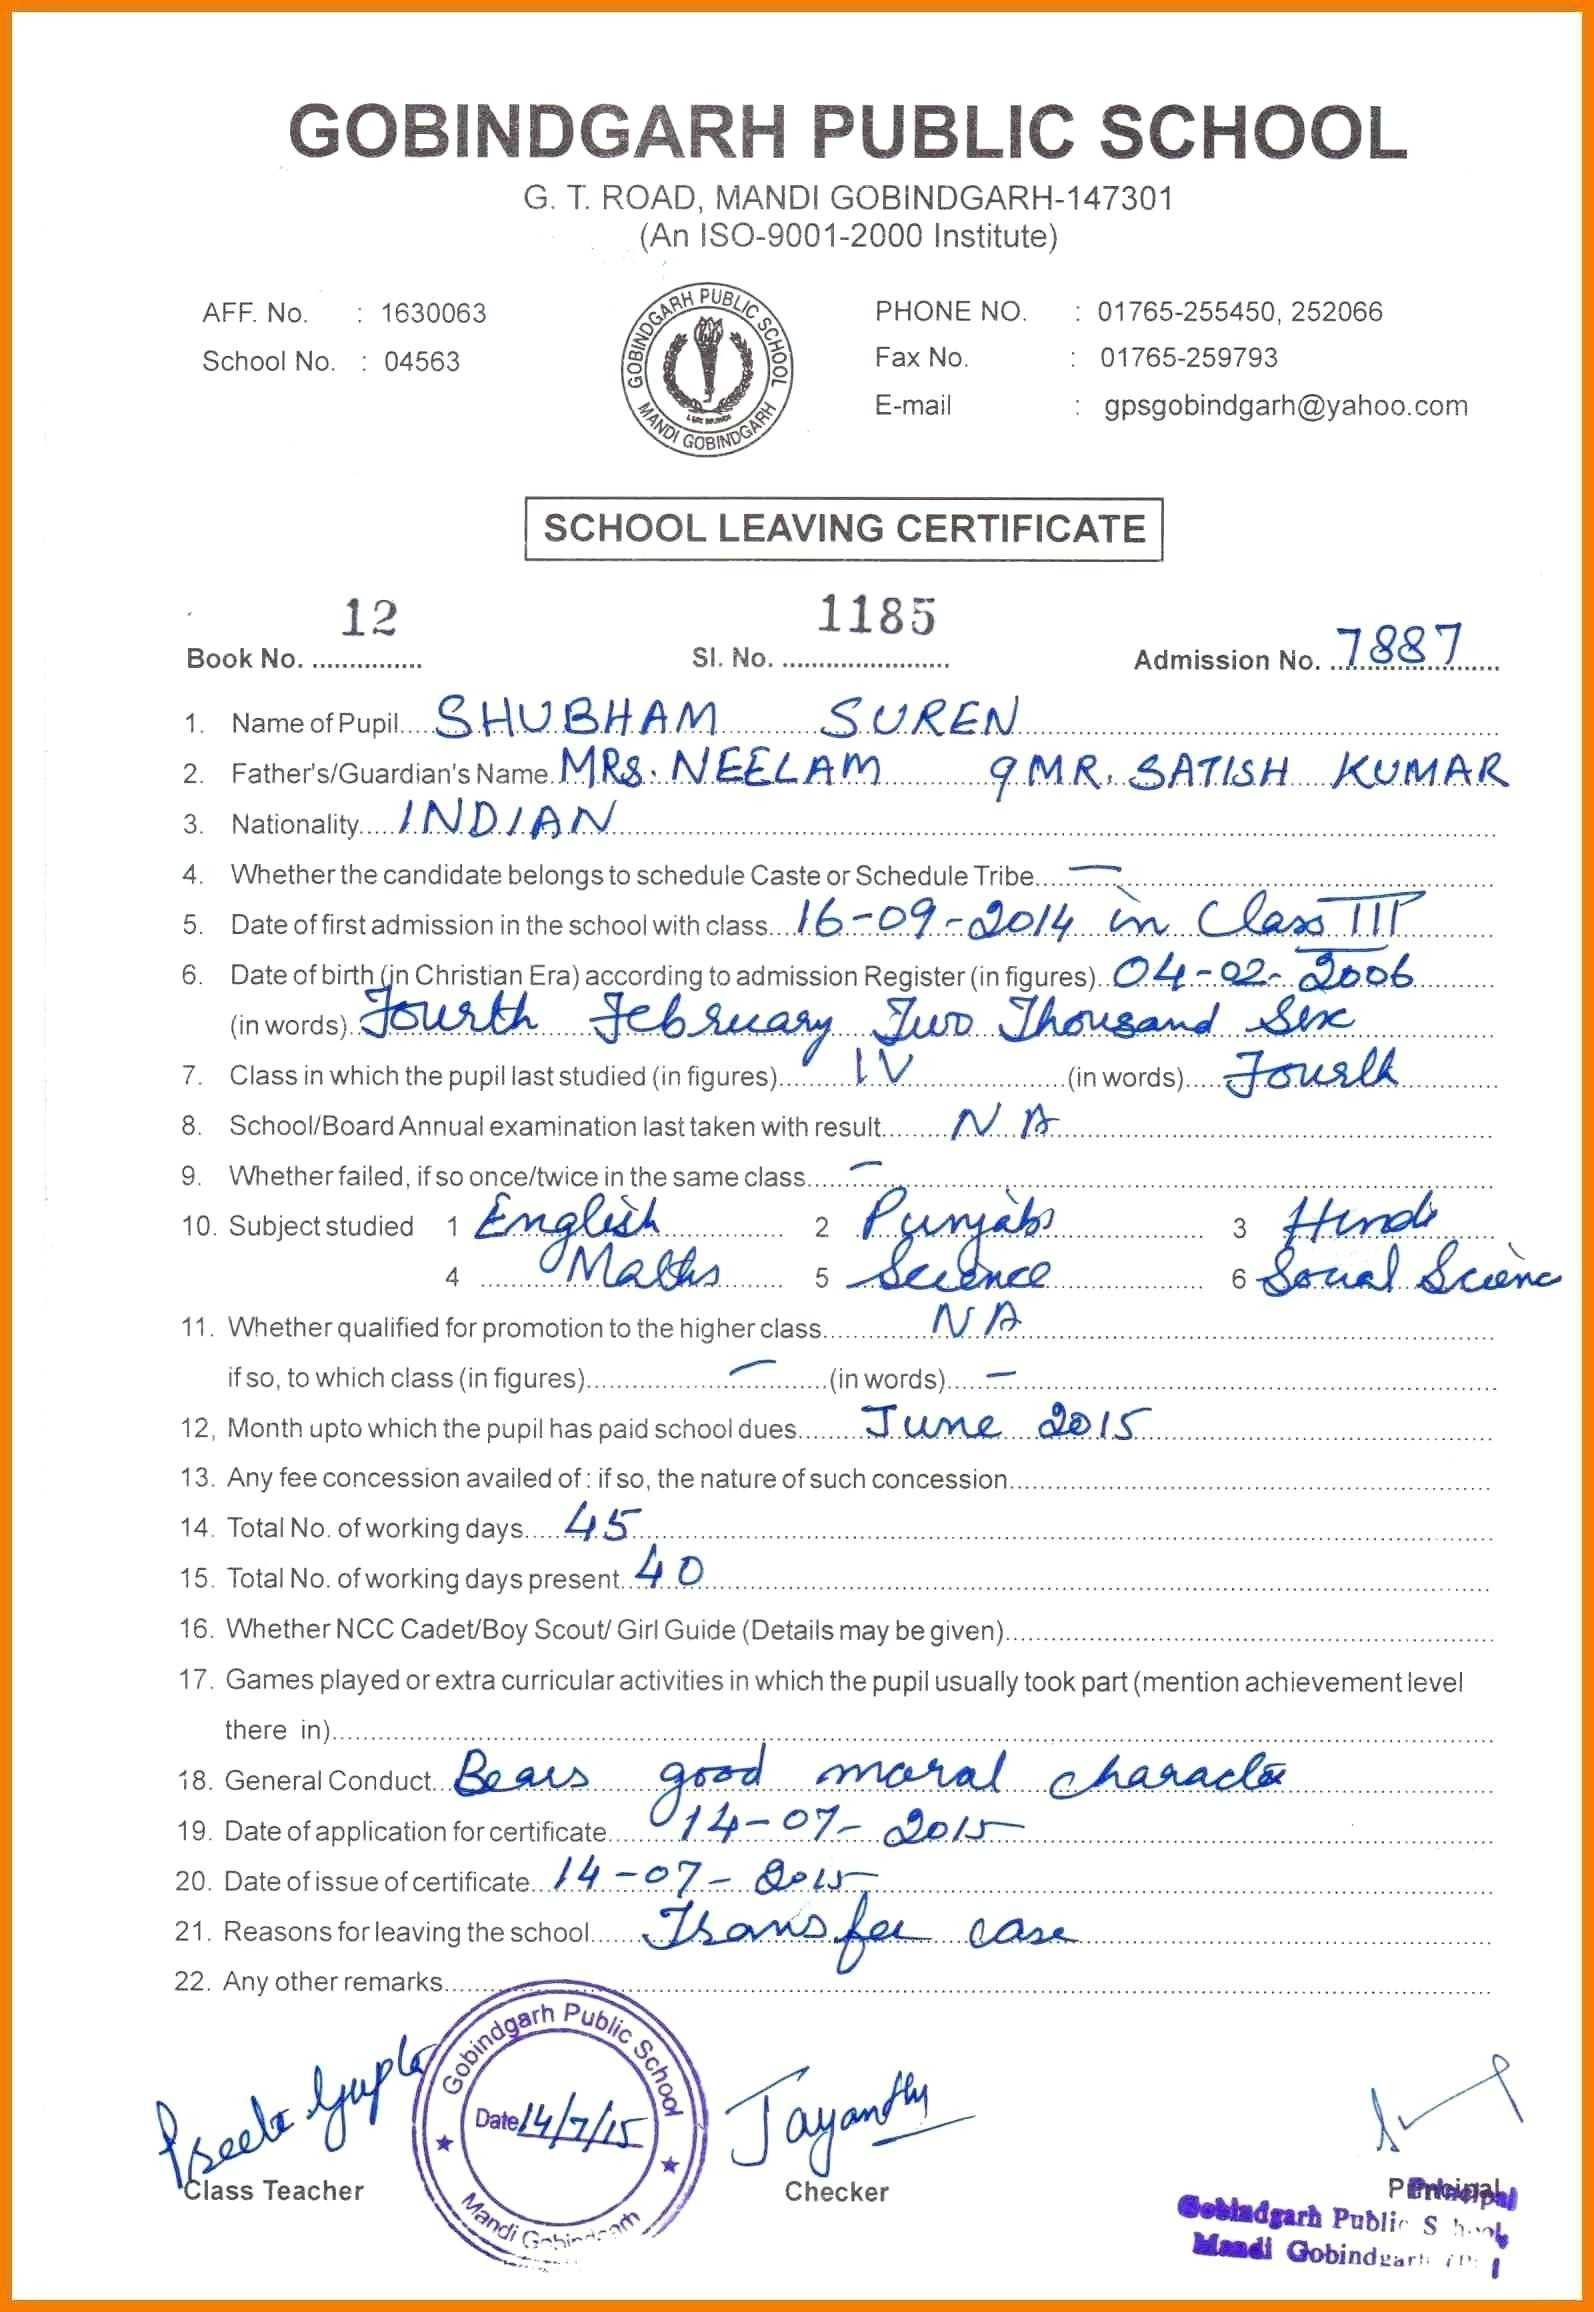 GOBINDGARH PUBLIC SCHOOL
G. T. ROAD, MANDI GOBINDGARH-147301
(An ISO-9001-2000 Institute)
AFF. No. : 1630063
School No. : 04563
GOBINDGARH PUBLIC SCHOOL
MANDI GOBINDGARH
PHONE NO. : 01765-255450, 252066
Fax No. : 01765-259793
E-mail : gpsgobindgarh@yahoo.com
SCHOOL LEAVING CERTIFICATE
Book No. 12 Sl. No. 1185 Admission No. 7887
1. Name of Pupil SHUBHAM SUREN
2. Father's/Guardian's Name MRS. NEELAM MR. SATISH KUMAR
3. Nationality INDIAN
4. Whether the candidate belongs to schedule Caste or Schedule Tribe —
5. Date of first admission in the school with class 16-09-2014 in Class III
6. Date of birth (in Christian Era) according to admission Register (in figures) 04-02-2006
(in words) Fourth February Two Thousand Six
7. Class in which the pupil last studied (in figures) IV (in words) Fourth
8. School/Board Annual examination last taken with result NA
9. Whether failed, if so once/twice in the same class —
10. Subject studied 1 English 2 Punjabi 3 Hindi
4 Maths 5 Science 6 Social Scienc
11. Whether qualified for promotion to the higher class NA
if so, to which class (in figures) — (in words) —
12, Month upto which the pupil has paid school dues June 2015
13. Any fee concession availed of : if so, the nature of such concession
14. Total No. of working days 45
15. Total No. of working days present 40
16. Whether NCC Cadet/Boy Scout/ Girl Guide (Details may be given)
17. Games played or extra curricular activities in which the pupil usually took part (mention achievement level
there in)
18. General Conduct Bears good moral character
19. Date of application for certificate 14-07-2015
20. Date of issue of certificate 14-07-2015
21. Reasons for leaving the school Transfer case
22. Any other remarks
Gobindgarh Public School
Date 14/7/15
Mandi Gobindgarh
Preeti Gupta
Jayanthy
Class Teacher
Checker
Principal
Principal
Gobindgarh Public School
Mandi Gobindgarh